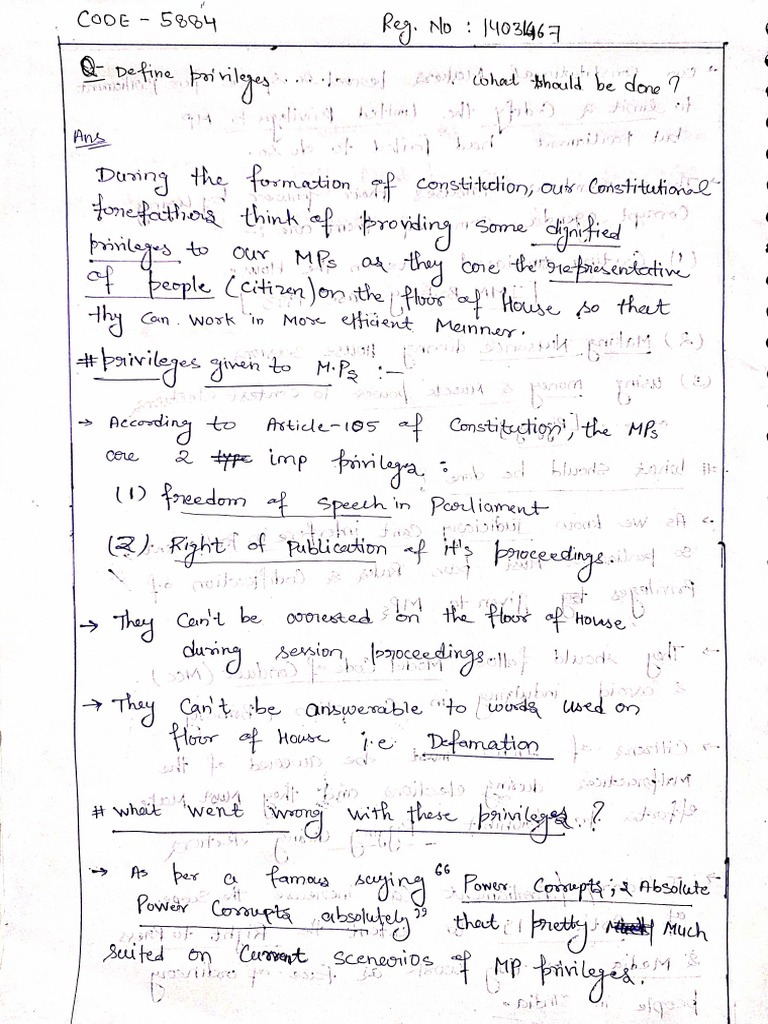 CODE - 5884 Reg. No : 1403467
Q- Define privileges ........ what should be done ?
Ans
During the formation of constitution, our Constitutional
forefathers think of providing some dignified
privileges to our MPs as they are the representative
of people (citizen) on the floor of House so that
thy can work in more efficient Manner.
# privileges given to M.Ps :-
→ According to Article-105 of Constitution, the MPs
are 2 type imp privileges :
(1) freedom of speech in Parliament
(2) Right of publication of it's proceedings.
→ They Can't be arrested on the floor of House
during session proceedings.
→ They Can't be answerable to words used on
floor of House i.e Defamation
# what went wrong with these privileges. ?
→ As per a famous saying "Power Corrupts; & Absolute
Power Corrupts absolutely" that pretty Much
suited on Current scenerios of MP privileges.